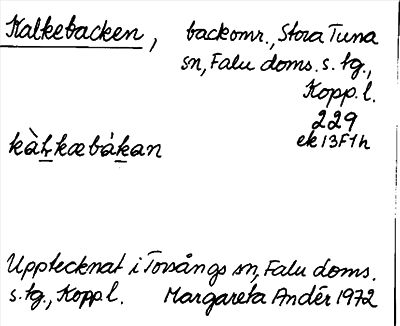 Kalkebacken, backomr., Stora Tuna
sn, Falu doms. s. tg.,
Kopp. l.
229
ek 13F1h
kàḻkæbákan
Upptecknat i Torsångs sn, Falu doms.
s. tg., Kopp l. Margareta Andér 1972